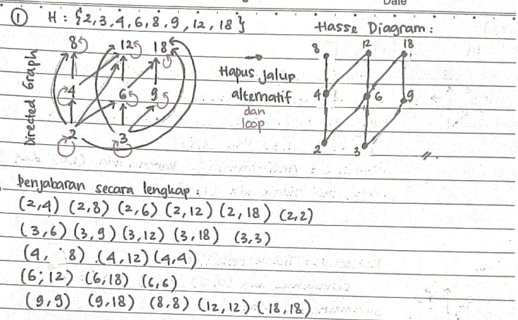 Date
① H : {2,3,4,6,8,9,12,18}
Hasse Diagram :
Directed Graph
8 12 18
4 6 9
2 3
Hapus jalur
alternatif
dan
loop
8 12 18
4 6 9
2 3
Penjabaran secara lengkap :
(2,4) (2,8) (2,6) (2,12) (2,18) (2,2)
(3,6) (3,9) (3,12) (3,18) (3,3)
(4, 8) (4,12) (4,4)
(6;12) (6,18) (6,6)
(9,9) (9,18) (8,8) (12,12) (18,18)